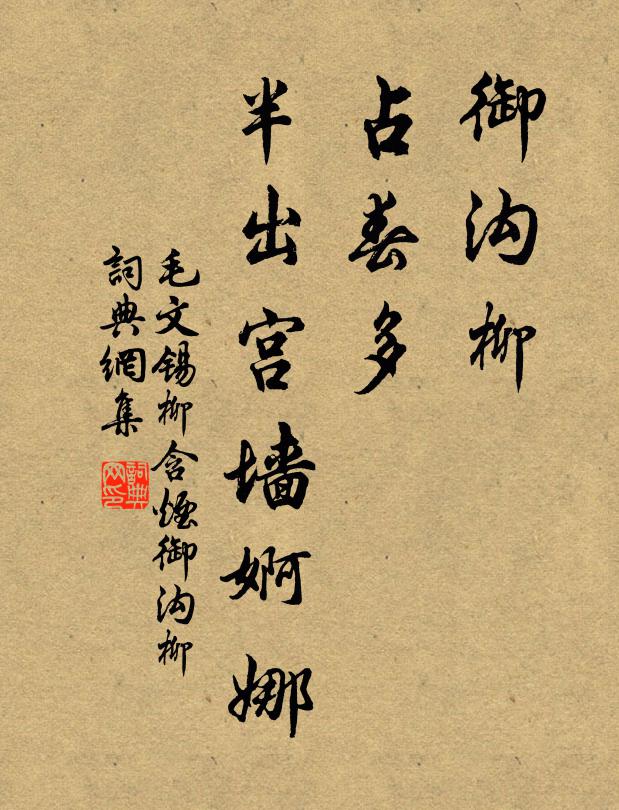 御沟柳
占春多
半出宫墙婀娜
毛文锡柳含煙御沟柳
詞典網集
詞典网印